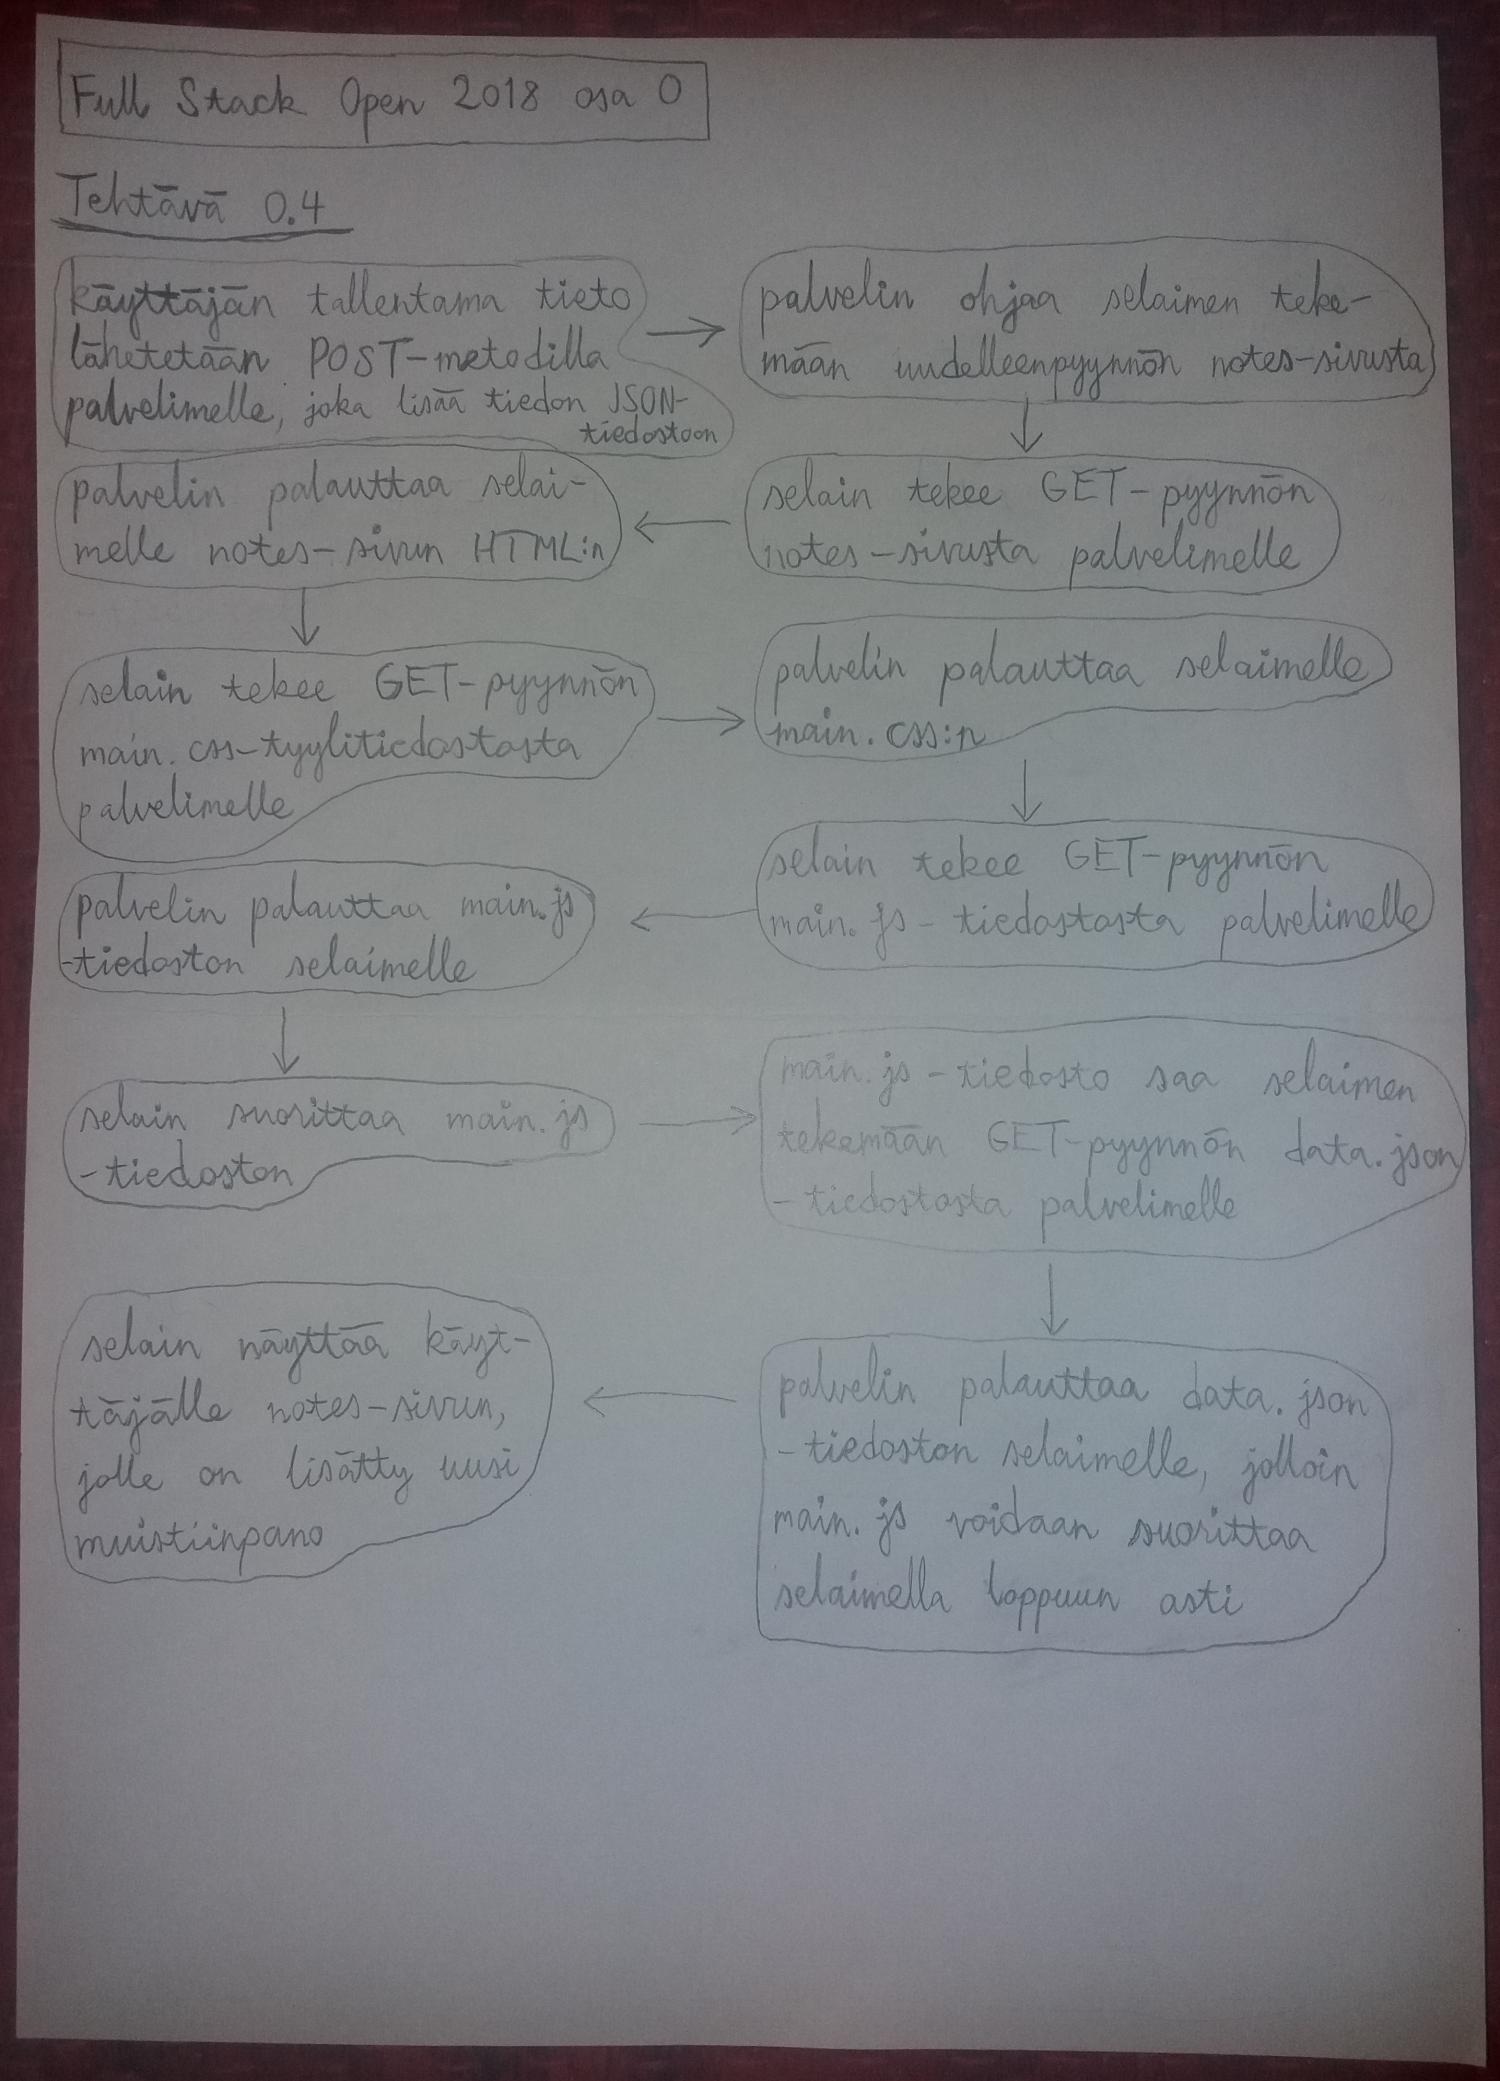 Full Stack Open 2018 osa 0
Tehtävä 0.4
käyttäjän tallentama tieto
lähetetään POST-metodilla
palvelimelle, joka lisää tiedon JSON-
tiedostoon
palvelin ohjaa selaimen teke-
mään uudelleenpyynnön notes-sivusta
selain tekee GET-pyynnön
notes-sivusta palvelimelle
palvelin palauttaa selai-
melle notes-sivun HTML:n
selain tekee GET-pyynnön
main.css-tyylitiedostosta
palvelimelle
palvelin palauttaa selaimelle
main.css:n
selain tekee GET-pyynnön
main.js-tiedostosta palvelimelle
palvelin palauttaa main.js
-tiedoston selaimelle
selain suorittaa main.js
-tiedoston
main.js-tiedosto saa selaimen
tekemään GET-pyynnön data.json
-tiedostosta palvelimelle
palvelin palauttaa data.json
-tiedoston selaimelle, jolloin
main.js voidaan suorittaa
selaimella loppuun asti
selain näyttää käyt-
täjälle notes-sivun,
jolle on lisätty uusi
muistiinpano